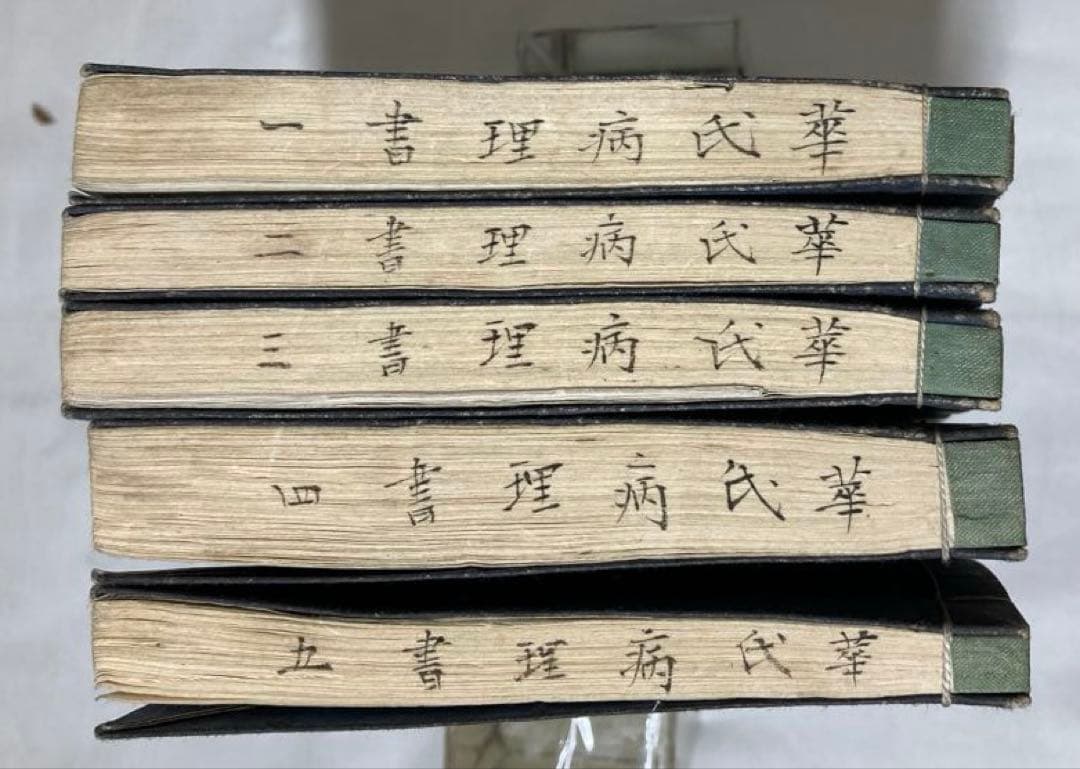 華氏病理書 一
華氏病理書 二
華氏病理書 三
華氏病理書 四
華氏病理書 五